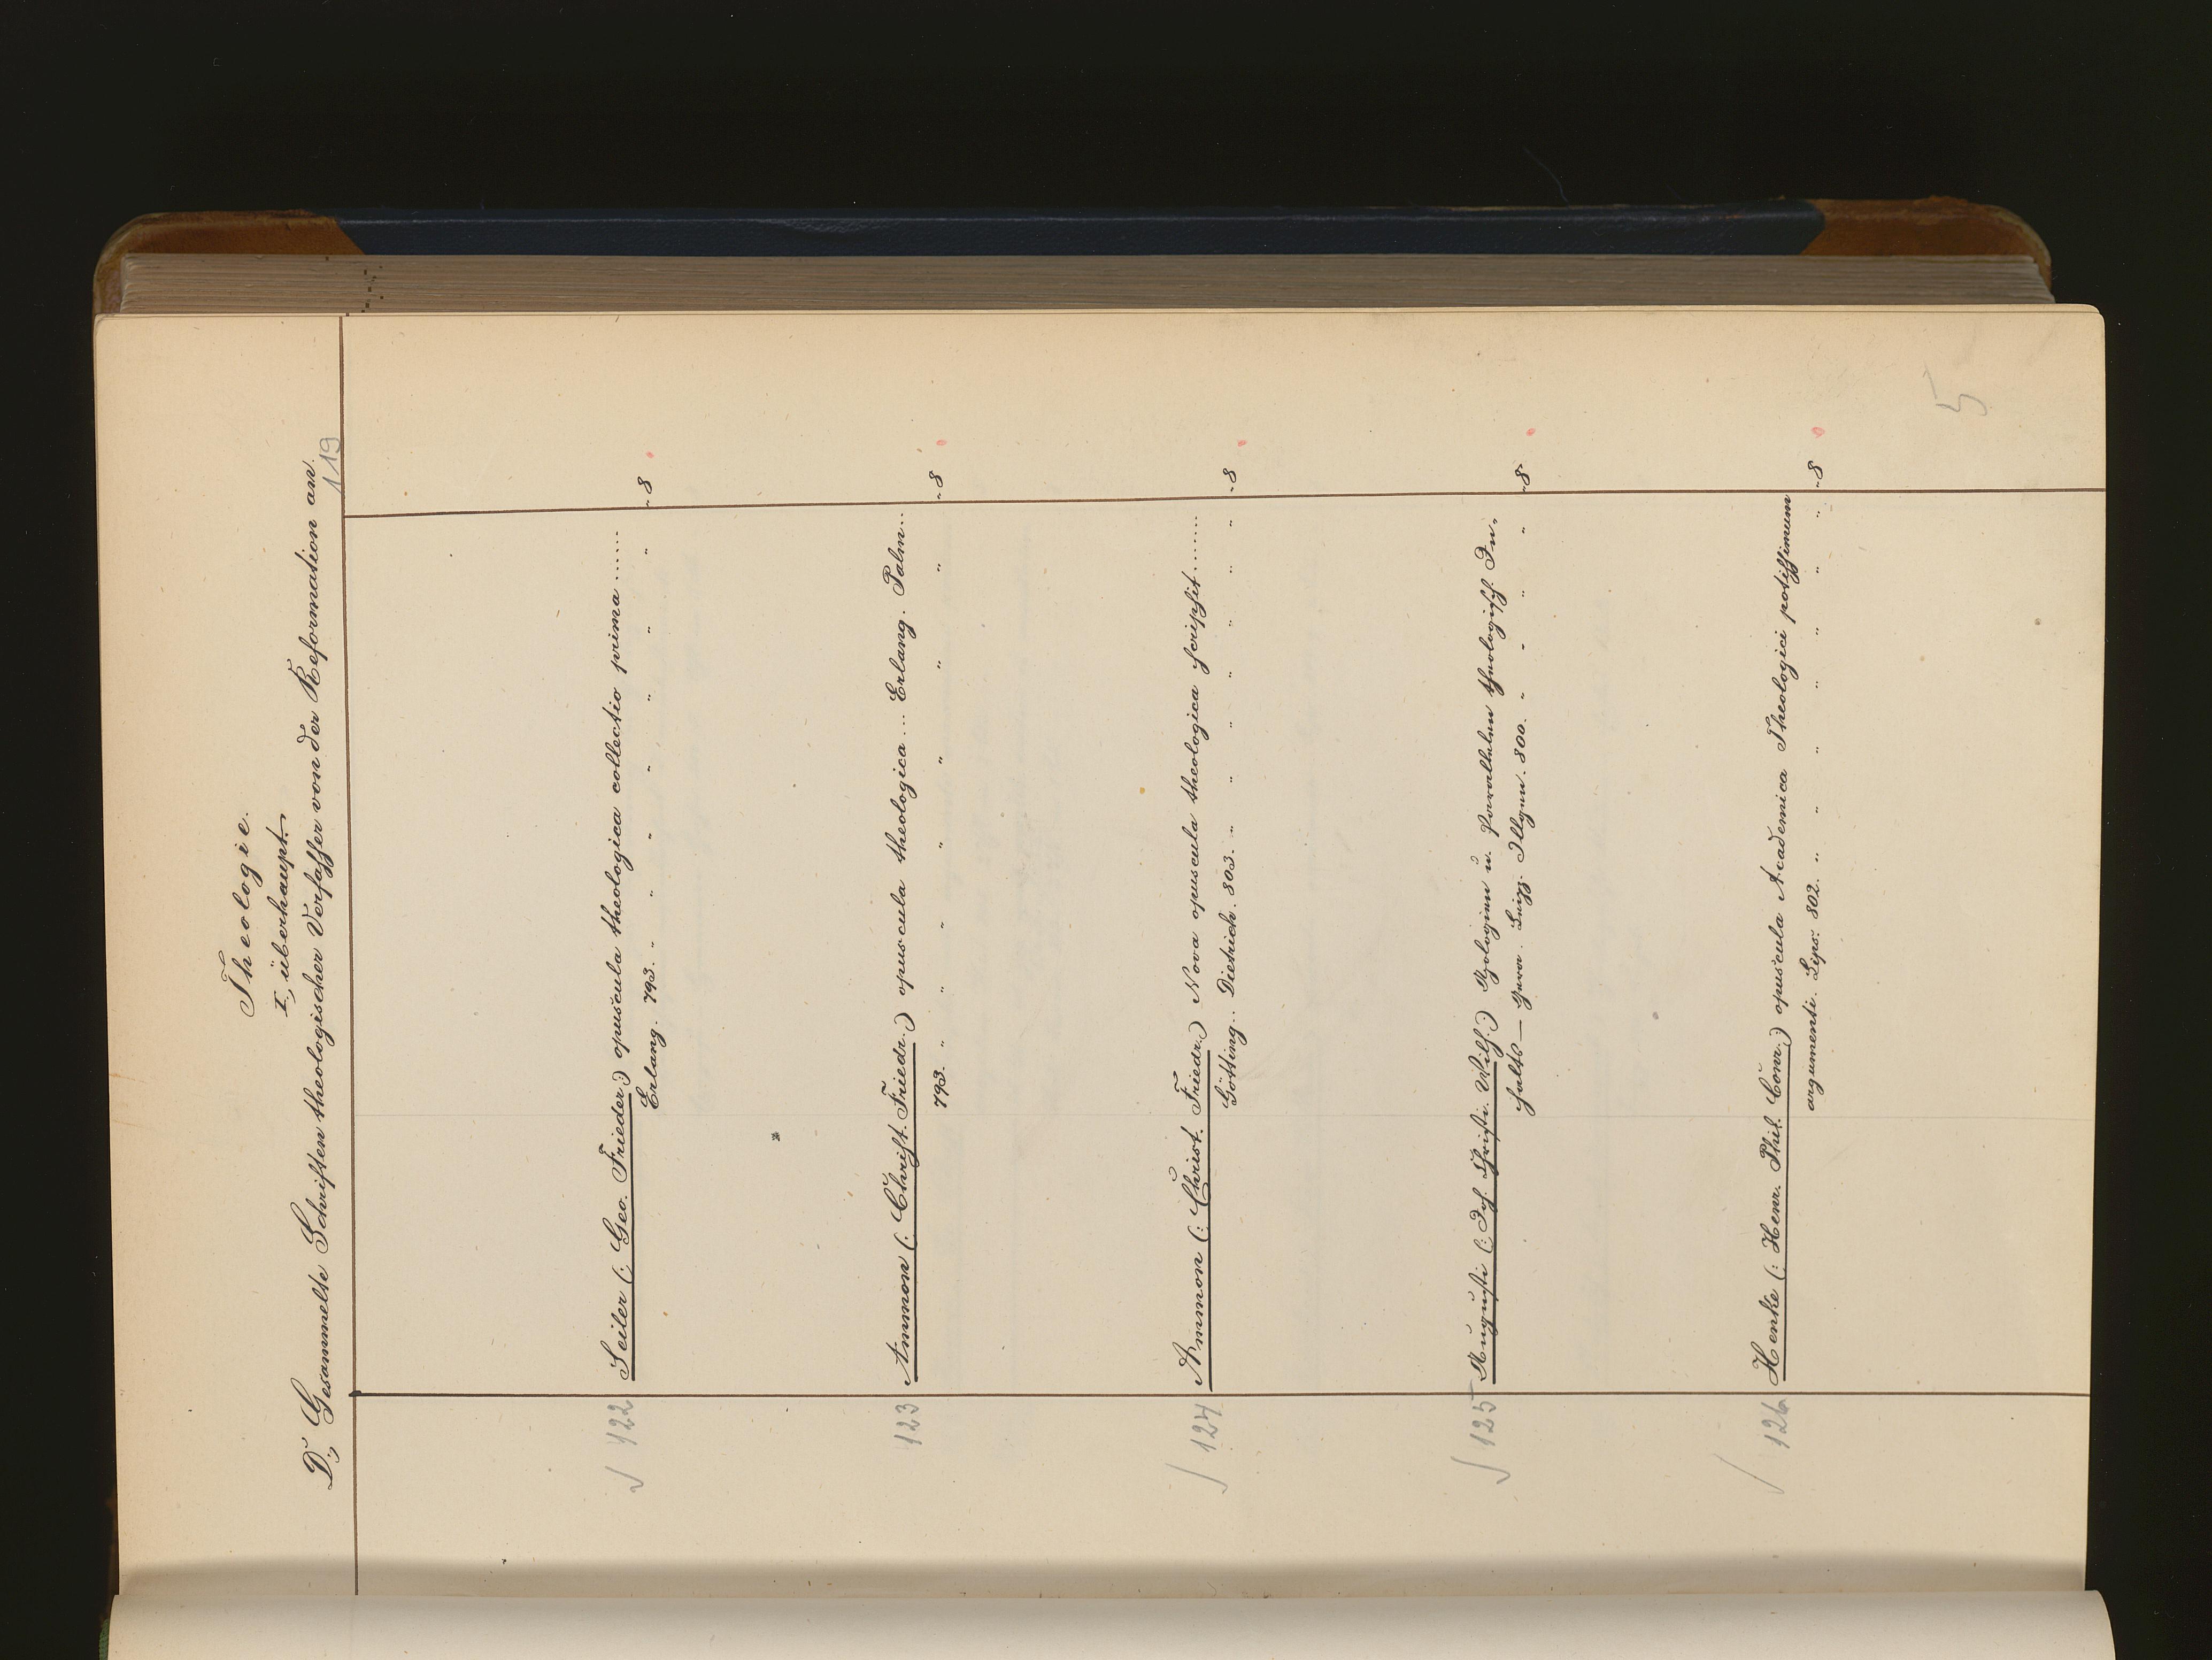 Theologie.
I., überhaupt.
D., Gesammelte Schriften theologischer Verfasser von der Reformation an.
119
√ 122 Seiler (: Geo. Frieder:) opuscula theologica collectio prima ......
Erlang. 793. " " " " " " " " 8
123 Ammon (: Christ. Friedr.:) opuscula theologica ... Erlang. Palm ..
793. " " " " " " " " 8
√ 124 Ammon (: Christ. Friedr.:) Nova opuscula theologica scripsit ......
Götting.. Dietrich. 803. " " " " " " " " 8
√ 125 Augusti (: Joh. Christi. Wilh.:) Apologien u. Parallelen theologisch. In„
halts — Gera. Leipz. Illgen. 800. " " " " " 8
√ 126 Henke (: Henr. Phil. Conr.:) opuscula Academica Theologici potissimum
argumenti. Lips: 802. " " " " " " " " 8
5